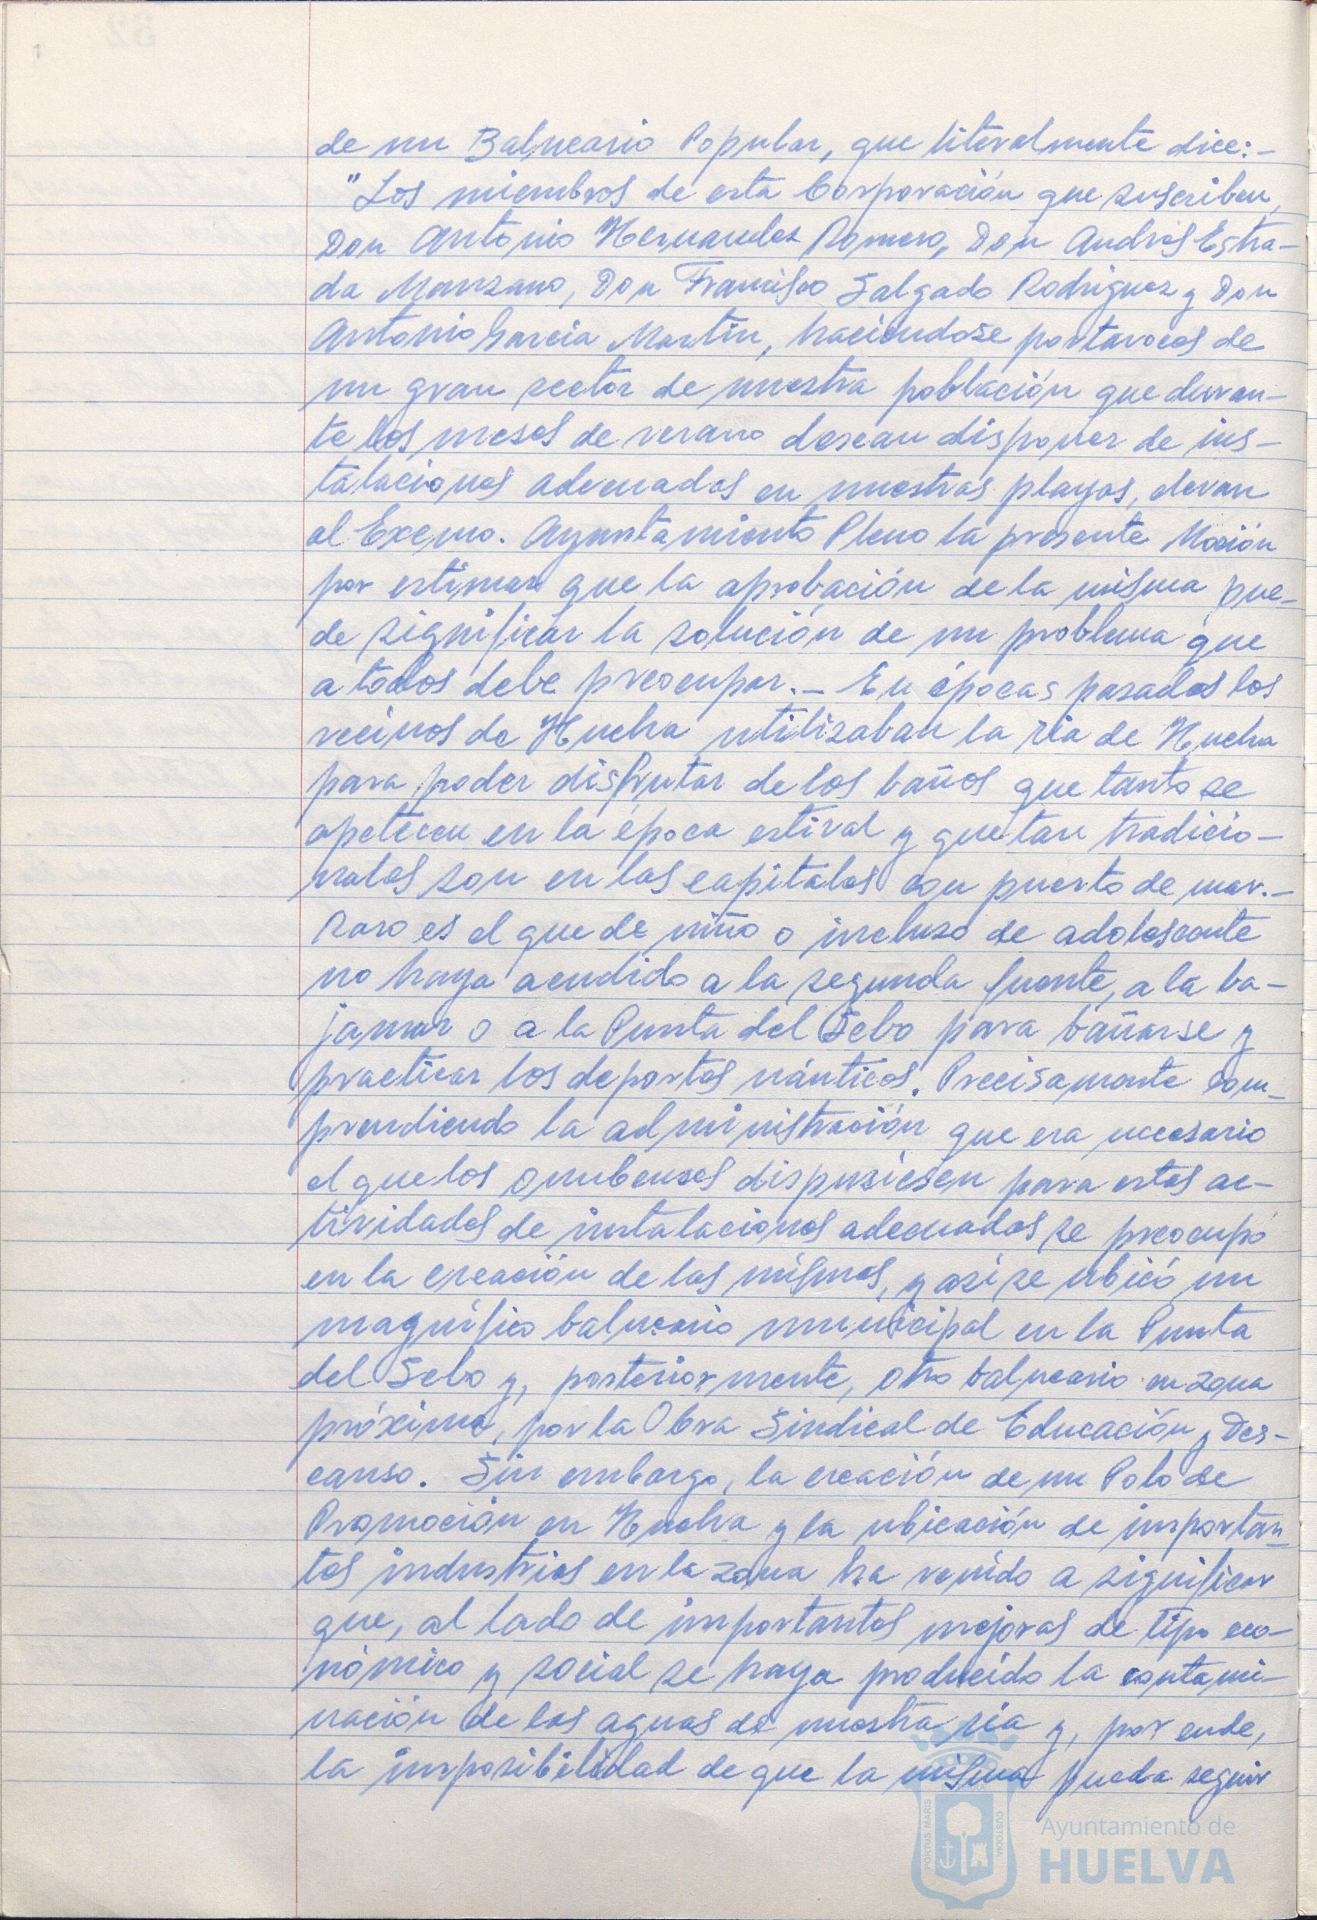 de un Balneario Popular, que literalmente dice:-
"Los miembros de esta Corporación que suscriben,
Don Antonio Hernandez Romero, Don Andrés Estra-
da Manzano, Don Francisco Salgado Rodriguez y Don
Antonio García Martín, haciéndose portavoces de
un gran sector de nuestra población que duran-
te los meses de verano desean disponer de ins-
talaciones adecuadas en nuestras playas, elevan
al Excmo. Ayuntamiento Pleno la presente Moción
por estimar que la aprobación de la misma pue-
de significar la solución de un problema que
a todos debe preocupar.- En épocas pasadas los
vecinos de Huelva utilizaban la ria de Huelva
para poder disfrutar de los baños que tanto se
apetecen en la época estival y que tan tradicio-
nales son en las capitales con puerto de mar.-
Raro es el que de niño o incluso de adolescente
no haya acudido a la segunda fuente, a la ba-
jamar o a la Punta del Sebo para bañarse y
practicar los deportes náuticos. Precisamente com-
prendiendo la administración que era necesario
el que los onubenses dispusiesen para estas ac-
tividades de instalaciones adecuadas se preocupó
en la creación de las mismas, y así se ubicó un
magnífico balneario municipal en la Punta
del Sebo y, posteriormente, otro balneario en zona
próxima, por la Obra Sindical de Educación y Des-
canso. Sin embargo, la creación de un Polo de
Promoción en Huelva y la ubicación de importan-
tes industrias en la zona ha venido a significar
que, al lado de importantes mejoras de tipo eco-
nómico y social se haya producido la contami-
nación de las aguas de nuestra ría y, por ende,
la imposibilidad de que la misma pueda seguir
PORTUS MARIS
CUSTODIA
Ayuntamiento de
HUELVA